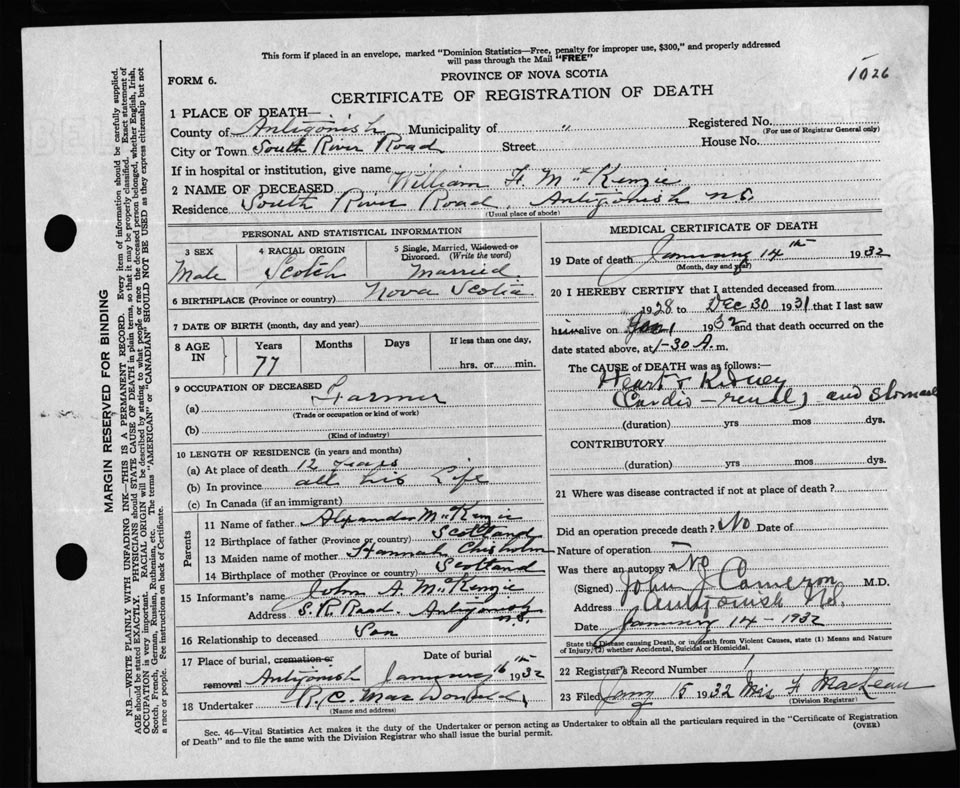 This form if placed in an envelope, marked "Dominion Statistics—Free, penalty for improper use, $300," and properly addressed
will pass through the Mail "FREE"
1026
FORM 6.
PROVINCE OF NOVA SCOTIA
CERTIFICATE OF REGISTRATION OF DEATH
1 PLACE OF DEATH—
County of Antigonish Municipality of " Registered No.
(For use of Registrar General only)
City or Town South River Road Street House No.
If in hospital or institution, give name
2 NAME OF DECEASED William F. McKenzie
Residence South River Road, Antigonish N.S.
(Usual place of abode)
PERSONAL AND STATISTICAL INFORMATION
3 SEX 4 RACIAL ORIGIN 5 Single, Married, Widowed or Divorced. (Write the word)
Male Scotch Married.
6 BIRTHPLACE (Province or country) Nova Scotia
7 DATE OF BIRTH (month, day and year)
8 AGE IN Years Months Days If less than one day,
77 hrs. or min.
9 OCCUPATION OF DECEASED
(a) Farmer
(Trade or occupation or kind of work)
(b)
(Kind of industry)
10 LENGTH OF RESIDENCE (in years and months)
(a) At place of death 12 years
(b) In province all his life
(c) In Canada (if an immigrant)
Parents
11 Name of father Alexander McKenzie
12 Birthplace of father (Province or country) Scotland
13 Maiden name of mother Hannah Chisholm
14 Birthplace of mother (Province or country) Scotland
15 Informant's name John A. McKenzie
Address S.R. Road. Antigonish N.S.
16 Relationship to deceased Son
17 Place of burial, cremation or removal Date of burial
Antigonish January 16th 1932
18 Undertaker R.C. MacDonald
(Name and address)
MEDICAL CERTIFICATE OF DEATH
19 Date of death January 14th 1932
(Month, day and year)
20 I HEREBY CERTIFY that I attended deceased from
1928 to Dec 30 1931 that I last saw
him alive on Jan 1 1932 and that death occurred on
date stated above, at 1-30 A.m.
The CAUSE of DEATH was as follows:—
Heart & Kidney
(Cardio-renal) and Stomach
(duration) yrs mos dys.
CONTRIBUTORY
(duration) yrs. mos. dys.
21 Where was disease contracted if not at place of death?
Did an operation precede death? No Date of
Nature of operation
Was there an autopsy? No
(Signed) John J Cameron M.D.
Address Antigonish N.S.
Date January 14 - 1932
State the Disease causing Death, or in death from Violent Causes, state (1) Means and Nature
of Injury, (2) whether Accidental, Suicidal or Homicidal.
22 Registrar's Record Number 1
23 Filed Jany 15 1932 Mrs F MacLean
(Division Registrar)
Sec. 46—Vital Statistics Act makes it the duty of the Undertaker or person acting as Undertaker to obtain all the particulars required in the "Certificate of Registration
of Death" and to file the same with the Division Registrar who shall issue the burial permit.
(OVER)
MARGIN RESERVED FOR BINDING
N.B.—WRITE PLAINLY WITH UNFADING INK—THIS IS A PERMANENT RECORD. Every item of information should be carefully supplied.
AGE should be stated EXACTLY. PHYSICIANS should STATE CAUSE OF DEATH in plain terms, so that it may be properly classified. Exact statement of
OCCUPATION is very important. RACIAL ORIGIN will be described by stating to what people or race the deceased person belonged, whether English, Irish,
Scotch, French, German, Russian, Ruthenian, etc. The terms "AMERICAN" or "CANADIAN" SHOULD NOT BE USED as they express citizenship but not
a race or people. See instructions on back of Certificate.